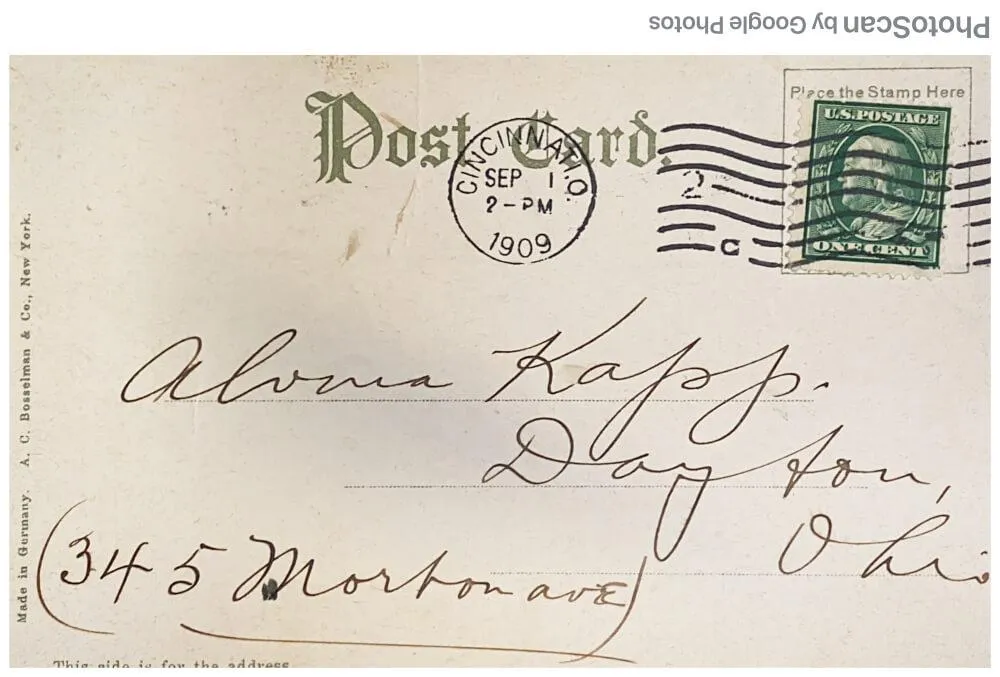 PhotoScan by Google Photos
Post Card.
Place the Stamp Here
U.S. POSTAGE
ONE CENT
CINCINNATI. O.
SEP 1
2-PM
1909
2
C
Alvina Kapp.
Dayton,
Ohio
(345 Morton ave)
Made in Germany. A. C. Bosselman & Co., New York.
This side is for the address